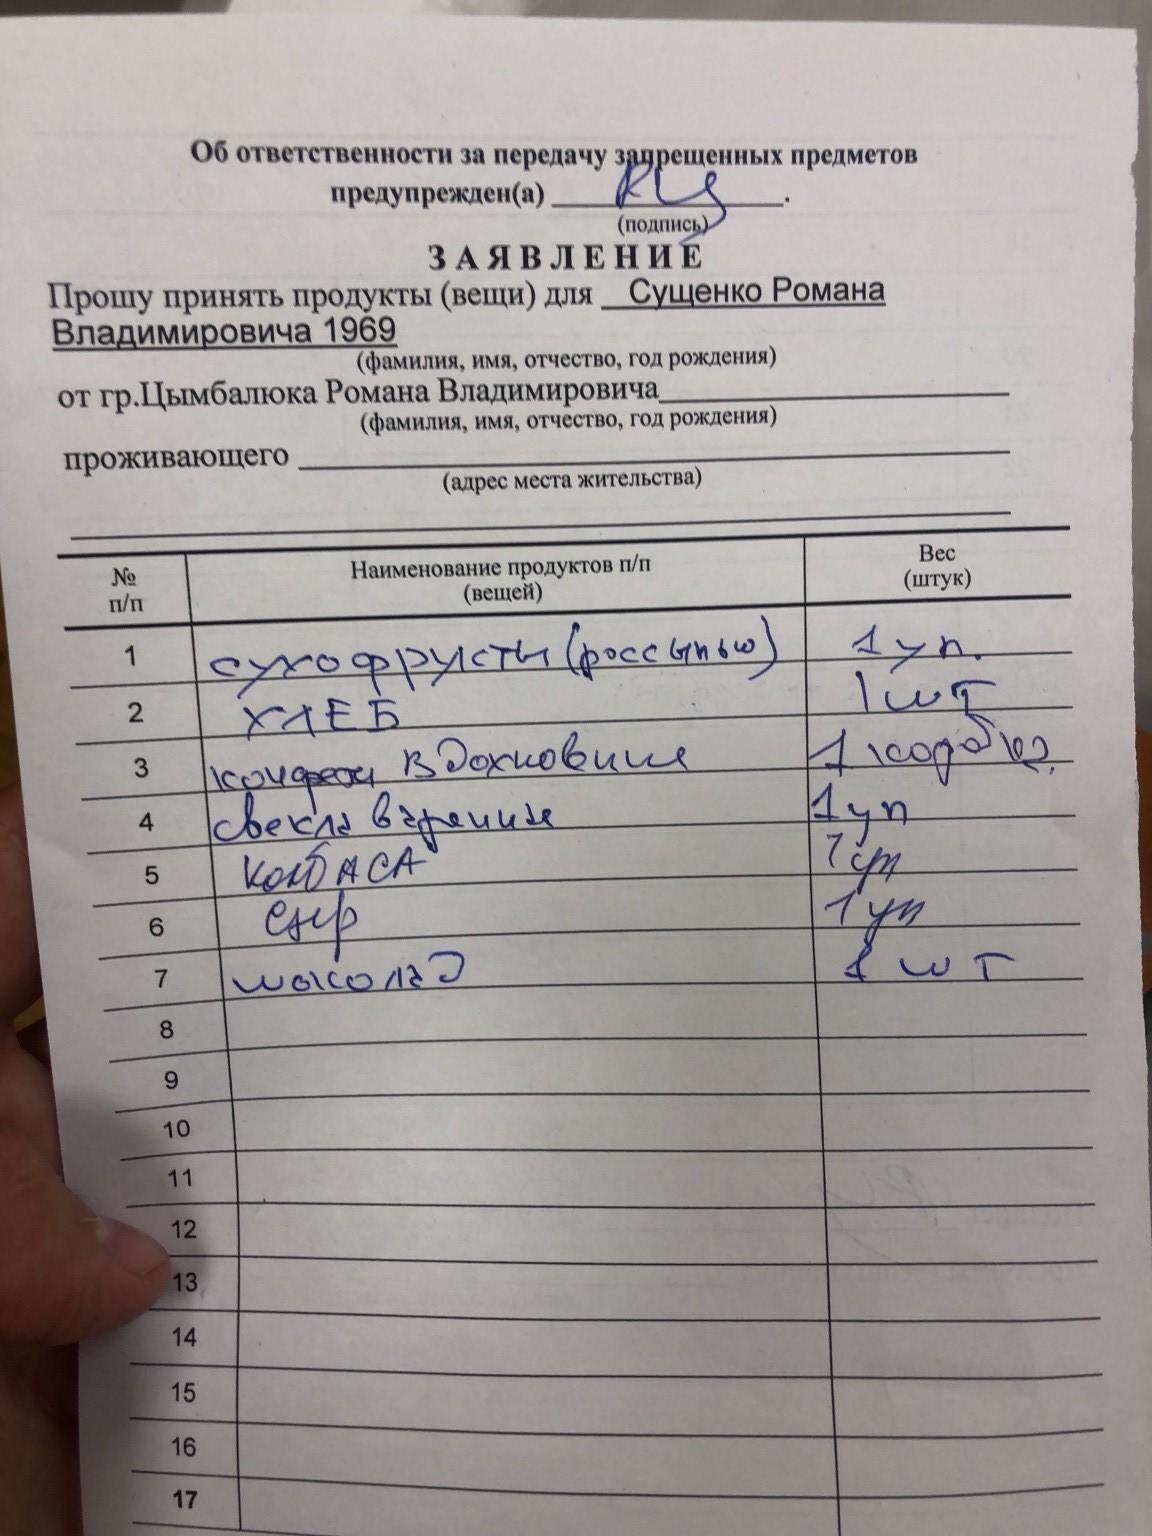 Об ответственности за передачу запрещенных предметов
предупрежден(а) ____________.
(подпись)
ЗАЯВЛЕНИЕ
Прошу принять продукты (вещи) для Сущенко Романа
Владимировича 1969
(фамилия, имя, отчество, год рождения)
от гр.Цымбалюка Романа Владимировича
(фамилия, имя, отчество, год рождения)
проживающего
(адрес места жительства)
№ п/п Наименование продуктов п/п (вещей) Вес (штук)
1 сухофрукты (россыпью) 1 уп.
2 ХЛЕБ 1 шт
3 конфеты вдохновиние 1 коробка
4 свекла вареная 1 уп
5 КолбАСА
6 сыр 1 уп
7 шоколад 1 шт
8
9
10
11
12
13
14
15
16
17